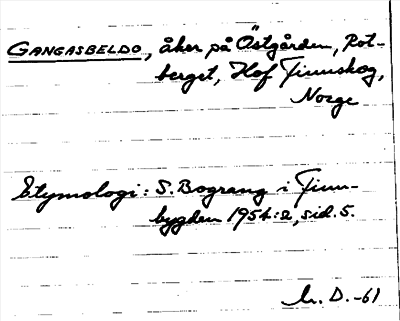 GANGASBELDO, åker på Östgården, Rot-
berget, Hof Finnskog,
Norge
Etymologi: S. Bograng i Finn-
bygden 1954:2, sid. 5.
D.-61